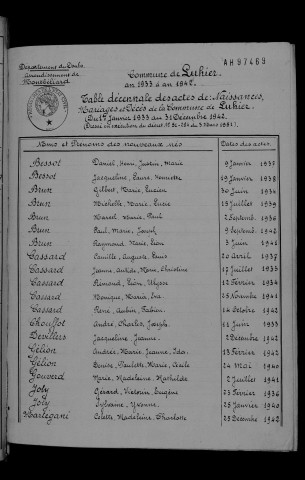 Département du Doubs
Arrondissement de
Montbéliard
AH97469
Commune de Luhier.
an 1933 à an 1942.
Table décennale des actes de Naissances,
Mariages et Décès de la Commune de Luhier.
Du 1er Janvier 1933 au 31 Décembre 1942.
Noms et Prénoms des nouveaux-nés Dates des actes
Bessot Daniel, Henri, Justin, Marie 9 Janvier 1935
Bessot Jacqueline, Laure, Henriette 19 Janvier 1938
Brun Gilbert, Marie, Lucien 30 Juin 1934
Brun Michelle, Marie, Lucie 15 Juillet 1939
Brun Marcel, Marie, Paul 2 Septemb. 1936
Brun Paul, Marie, Joseph 9 Septemb. 1942
Brun Raymond, Marie, Léon 3 Juin 1941
Cassard Camille, Auguste, Louis 20 Avril 1937
Cassard Jeanne, Marie, Christine 17 Juillet 1935
Cassard Fernand, Léon, Ulysse 12 Février 1934
Cassard Monique, Maria, Eva 25 Novembre 1941
Cassard René, Aubin, Fabien 14 Octobre 1942
Chouffot André, Charles, Joseph 11 Juin 1933
Devillers Jacqueline, Jeanne 2 Décembre 1942
Gélion Andrée, Marie, Jeanne, Ida 13 Février 1942
Gélion Denise, Paulette, Marie, Cécile 24 Mai 1940
Marie, Madeleine, Mathilde 2 Juillet 1941
Joly Gérard, Victorin, Eugène 23 Février 1936
Joly Sylvaine, Yvonne 25 Janvier 1940
Marlegani Colette, Madeleine, Charlotte 25 Décembre 1942